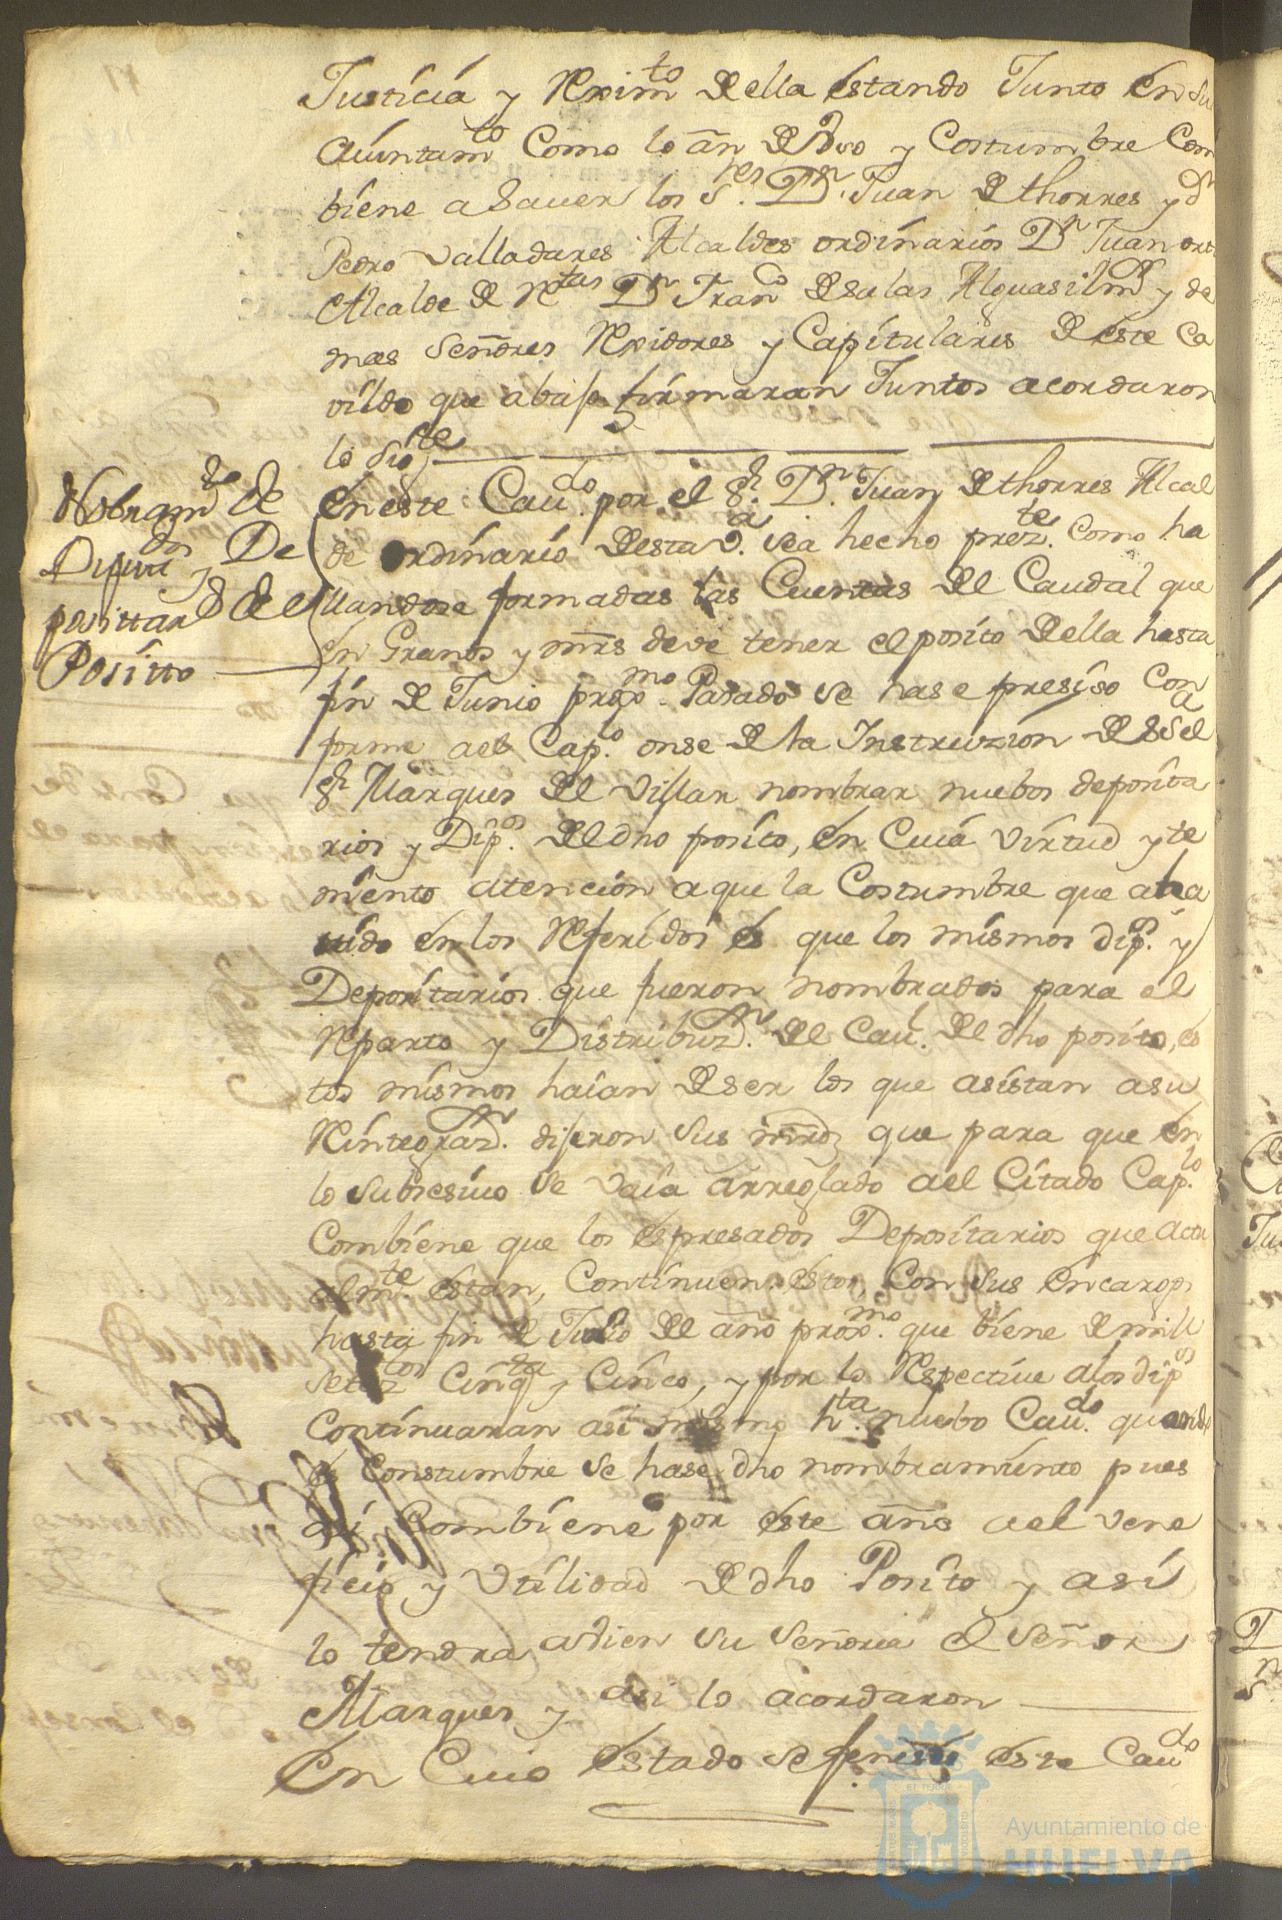 Justicia y Reximto de ella estando Junto en su
Aiuntamto como lo an de Vso y Costumbre Com
biene a Sauer los Sres Dn Juan de thorres y dn
Pedro Valladares Alcaldes ordinarios Dn Juan
Alcalde de Rtas Dn Franco de salas Alguasil mr y de
mas Señores Rexidores y Capitulares de este Ca
vildo que abajo firmaran Juntos acordaron
lo sigte
Nobramto de
Diputdos y De
posittarios de el
Positto
En este Caudo por el Sr Dn Juan de thorres Alcal
de ordinario de esta Va sea hecho prezte como ha
llandose formadas las Cuentas de el Caudal que
en Granos y mrs deve tener el posito de ella hasta
fin de Junio proxmo Pasado se hase presiso con
forme ael Capo onse de la Instruzion de Sa el
Sr Marques de el Villar nombrar nuebos deposita
rios y Dipos de el dho posito, en Cuia Virtud y te
niento atencion a que la Costumbre que aha
uido en los Referidos es que los mismos dipos y
Depositarios que fueron nombrados para el
Reparto y Distribuzn de el Caul de el dho posito, es
tos mismos haian de ser los que asistan asu
Reintegrazn dijeron sus mrds que para que en
lo subcesiuo se vaia arreglado ael Citado Caplo
Combiene que los espresados Depositarios que actu
almte estan, Continuen estos, Con sus encargos
hasta fin de Julio de el año proxmo que biene de mill
setezos Cinqta y Cinco, y por lo Respectiue a los dipos
Continuaran asi mismo hta nuebo Caudo quando
es Constumbre se hase dho nombramiento pues
asi Combiene por este año ael vene
ficio y Vtilidad de dho Posito y asi
lo tendra a bien su Señoria el Señor
Marques y asi lo acordaron
En Cuio estado se feneció este Caudo
Ayuntamiento de
HUELVA